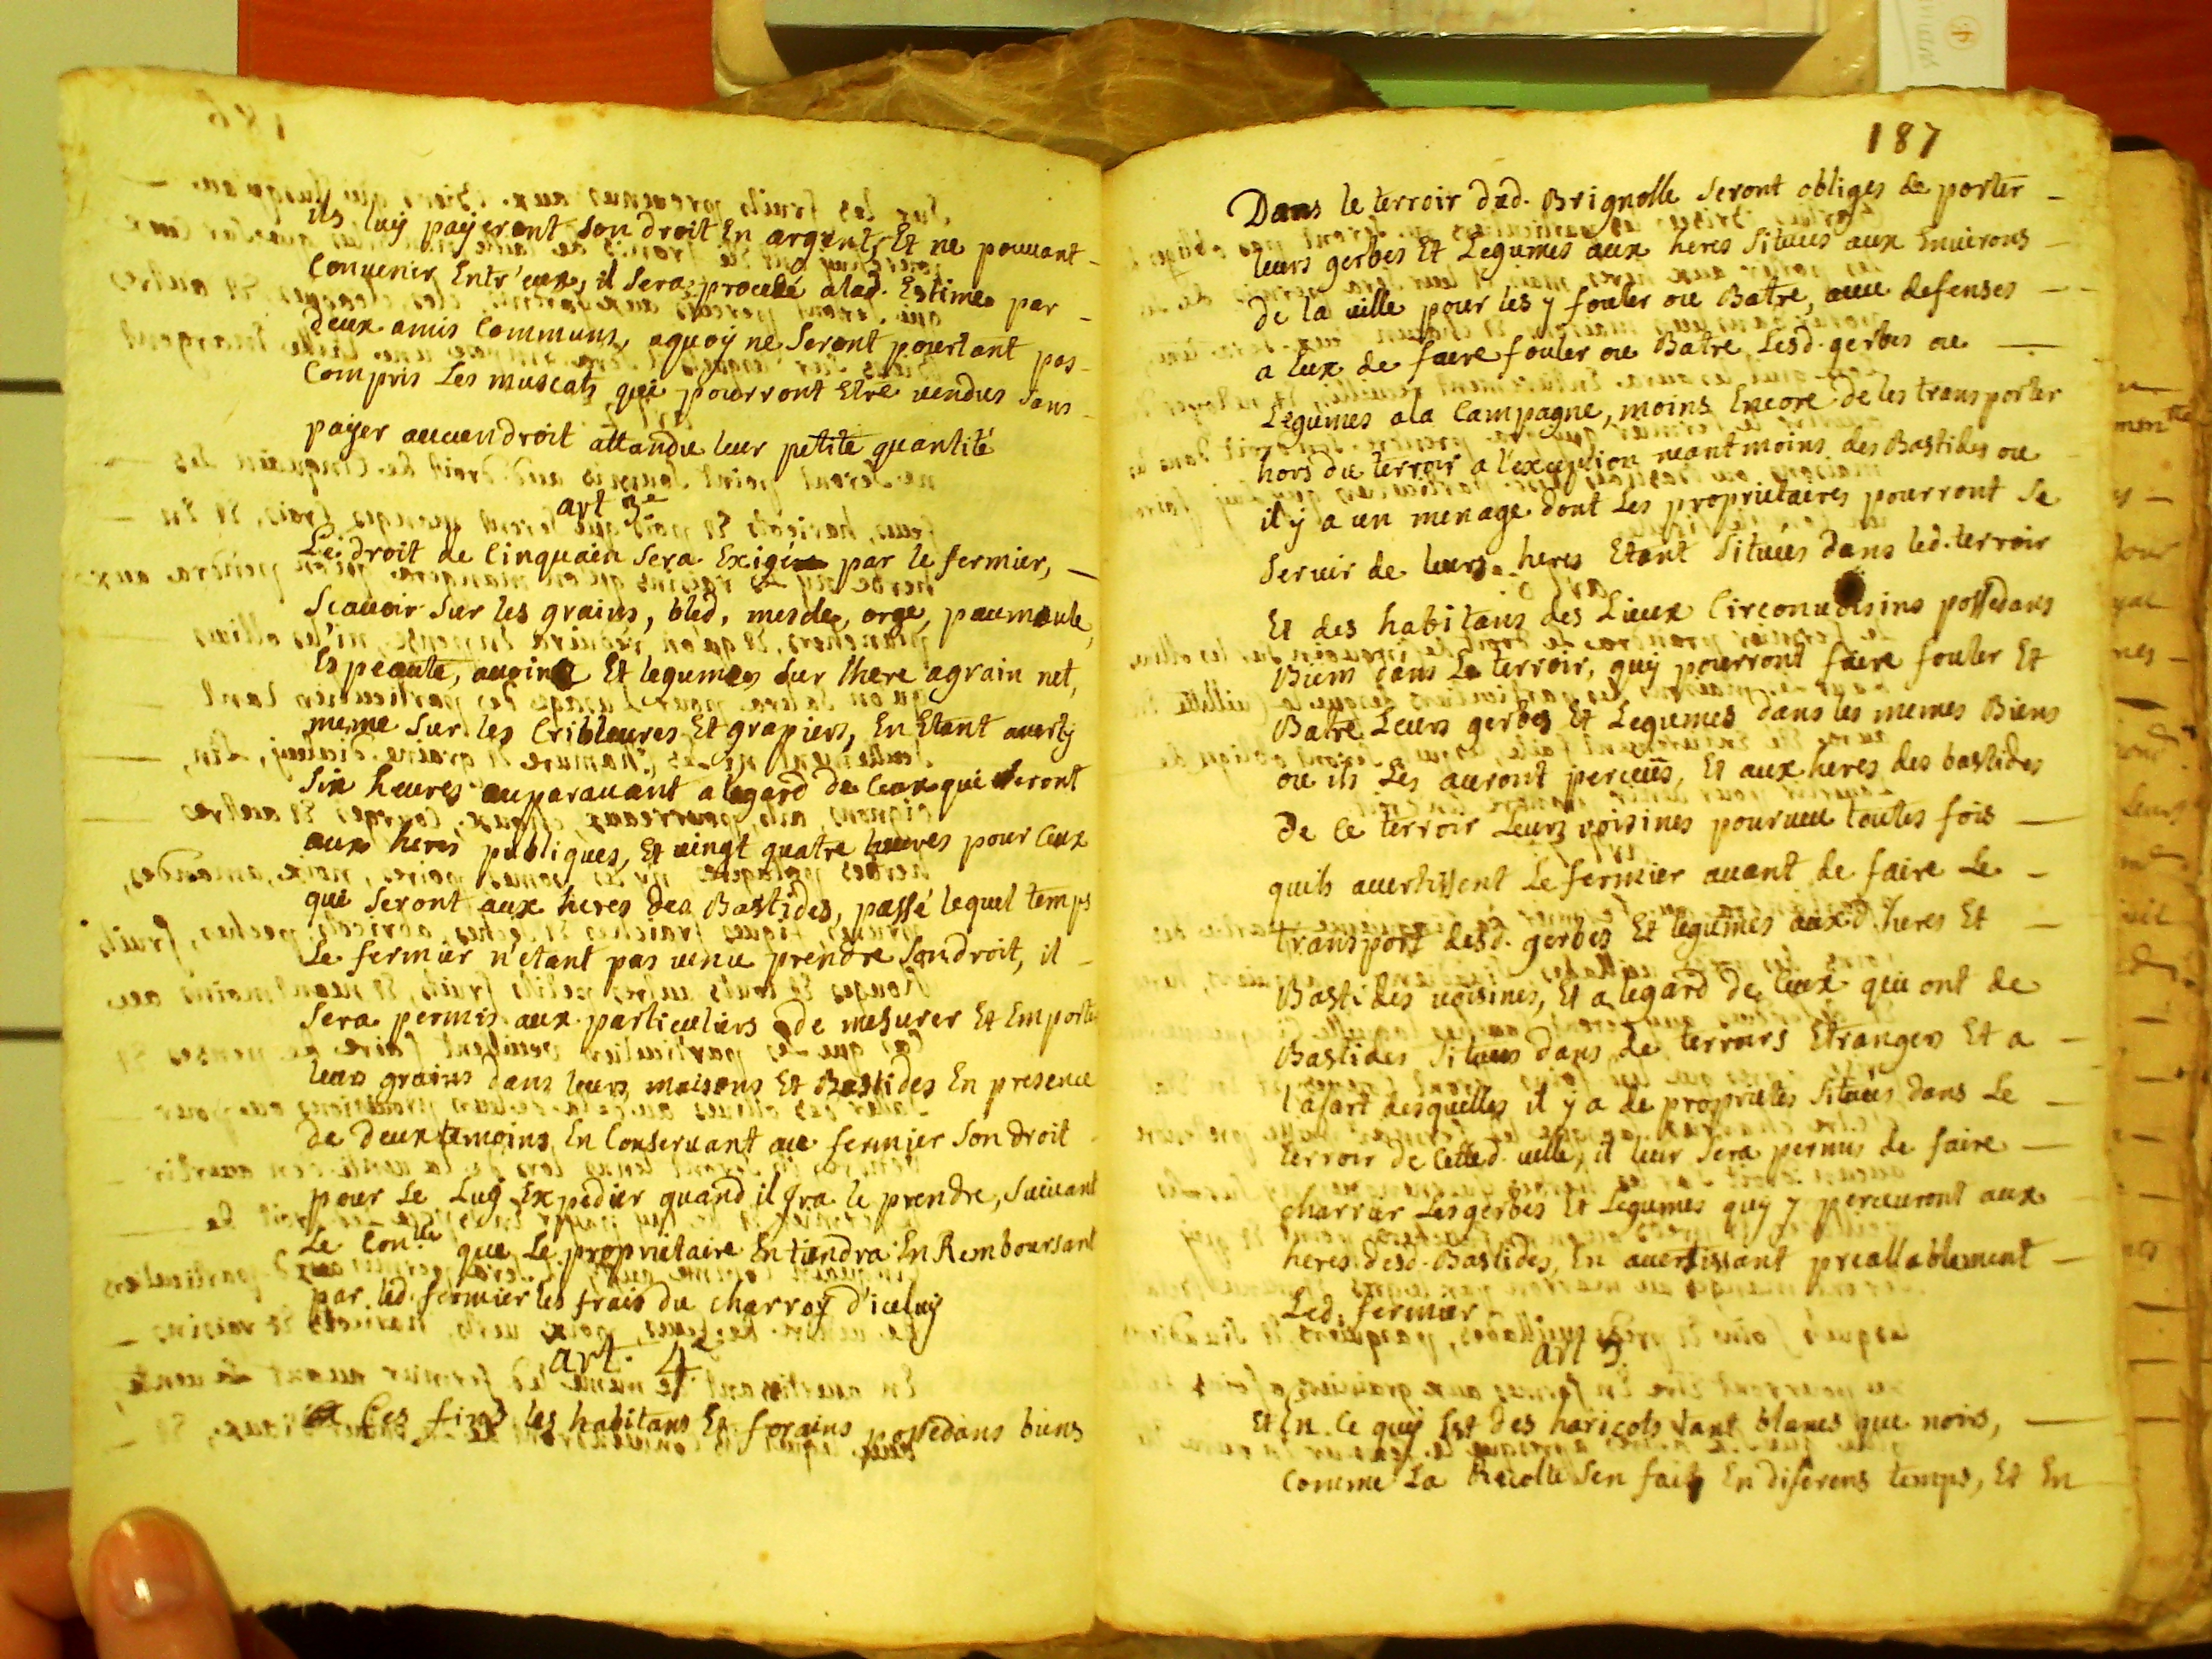 ils luy payeront son droit En argent, Et ne pouvant
Convenir Entr'eux, il sera procedé a lad. Estime par
deux amis Communs, aquoy ne seront pourtant pas
Compris Les muscats qui pourront Etre vendus sans
payer aucun droit attandu leur petite quantité
art 3e
Le droit de Cinquain sera Exigé par le fermier,
Scavoir sur les grains, bled, mescle, orge, paumoule,
Espeaute, avoine Et legumes sur lhere a grain net,
meme sur les Cribleures Et grapiers, En Etant averty
Six heures auparavant a legard de Ceux qui seront
aux heres publiques, Et vingt quatre heures pour Ceux
qui seront aux heres des Bastides, passé lequel temps
Le fermier n'etant pas venu prendre son droit, il
Sera permis aux particuliers de mesurer Et Emporter
leurs grains dans leurs maisons Et Bastides En presence
de deux temoins En Conservant au fermier son droit
pour Le Luy Expedier quand il Ira le prendre, suivant
Le Conlle que Le proprietaire En tiendra En Remboursant
par led. fermier les frais du charroy d'iceluy
art. 4e
a Ces fins les habitans Et forains possedans biens
187
Dans le terroir dud. Brignolle seront obliges de porter
leurs gerbes Et Legumes aux heres situées aux Environs
de la ville pour les y fouler ou Batre, avec defenses
a Eux de faire fouler ou Batre Lesd. gerbes ou
Legumes a la Campagne, moins Encore de les transporter
hors du terroir a l'exception neantmoins des Bastides ou
il y a un menage dont Les proprietaires pourront se
servir de leurs heres Etant situées dans led. terroir
Et des habitans des Lieux Circonvoisins possedans
Biens dans Le terroir, quy pourront faire fouler Et
Batre Leurs gerbes Et Legumes dans les memes Biens
ou ils Les auront perceus, Et aux heres des bastides
de Ce terroir Leurs voisines pourveu toutes fois
quils avertissent Le fermier avant de faire Le
transport desd. gerbes Et legumes auxd. heres Et
Bastides voisines, Et a legard de Ceux qui ont de
Bastides situées dans de terroirs Etrangers Et a
l'afart desquelles il y a de proprietés situées dans Le
terroir de Cetted. ville, il leur sera permis de faire
charrier Les gerbes Et Legumes quy y perceuront aux
heres desd. Bastides, En avertissant preallablement
Led. fermier
art 5.
Et En Ce quy Est des haricots tant blancs que noirs,
Comme La Recolte sen fait En diferens temps, Et En